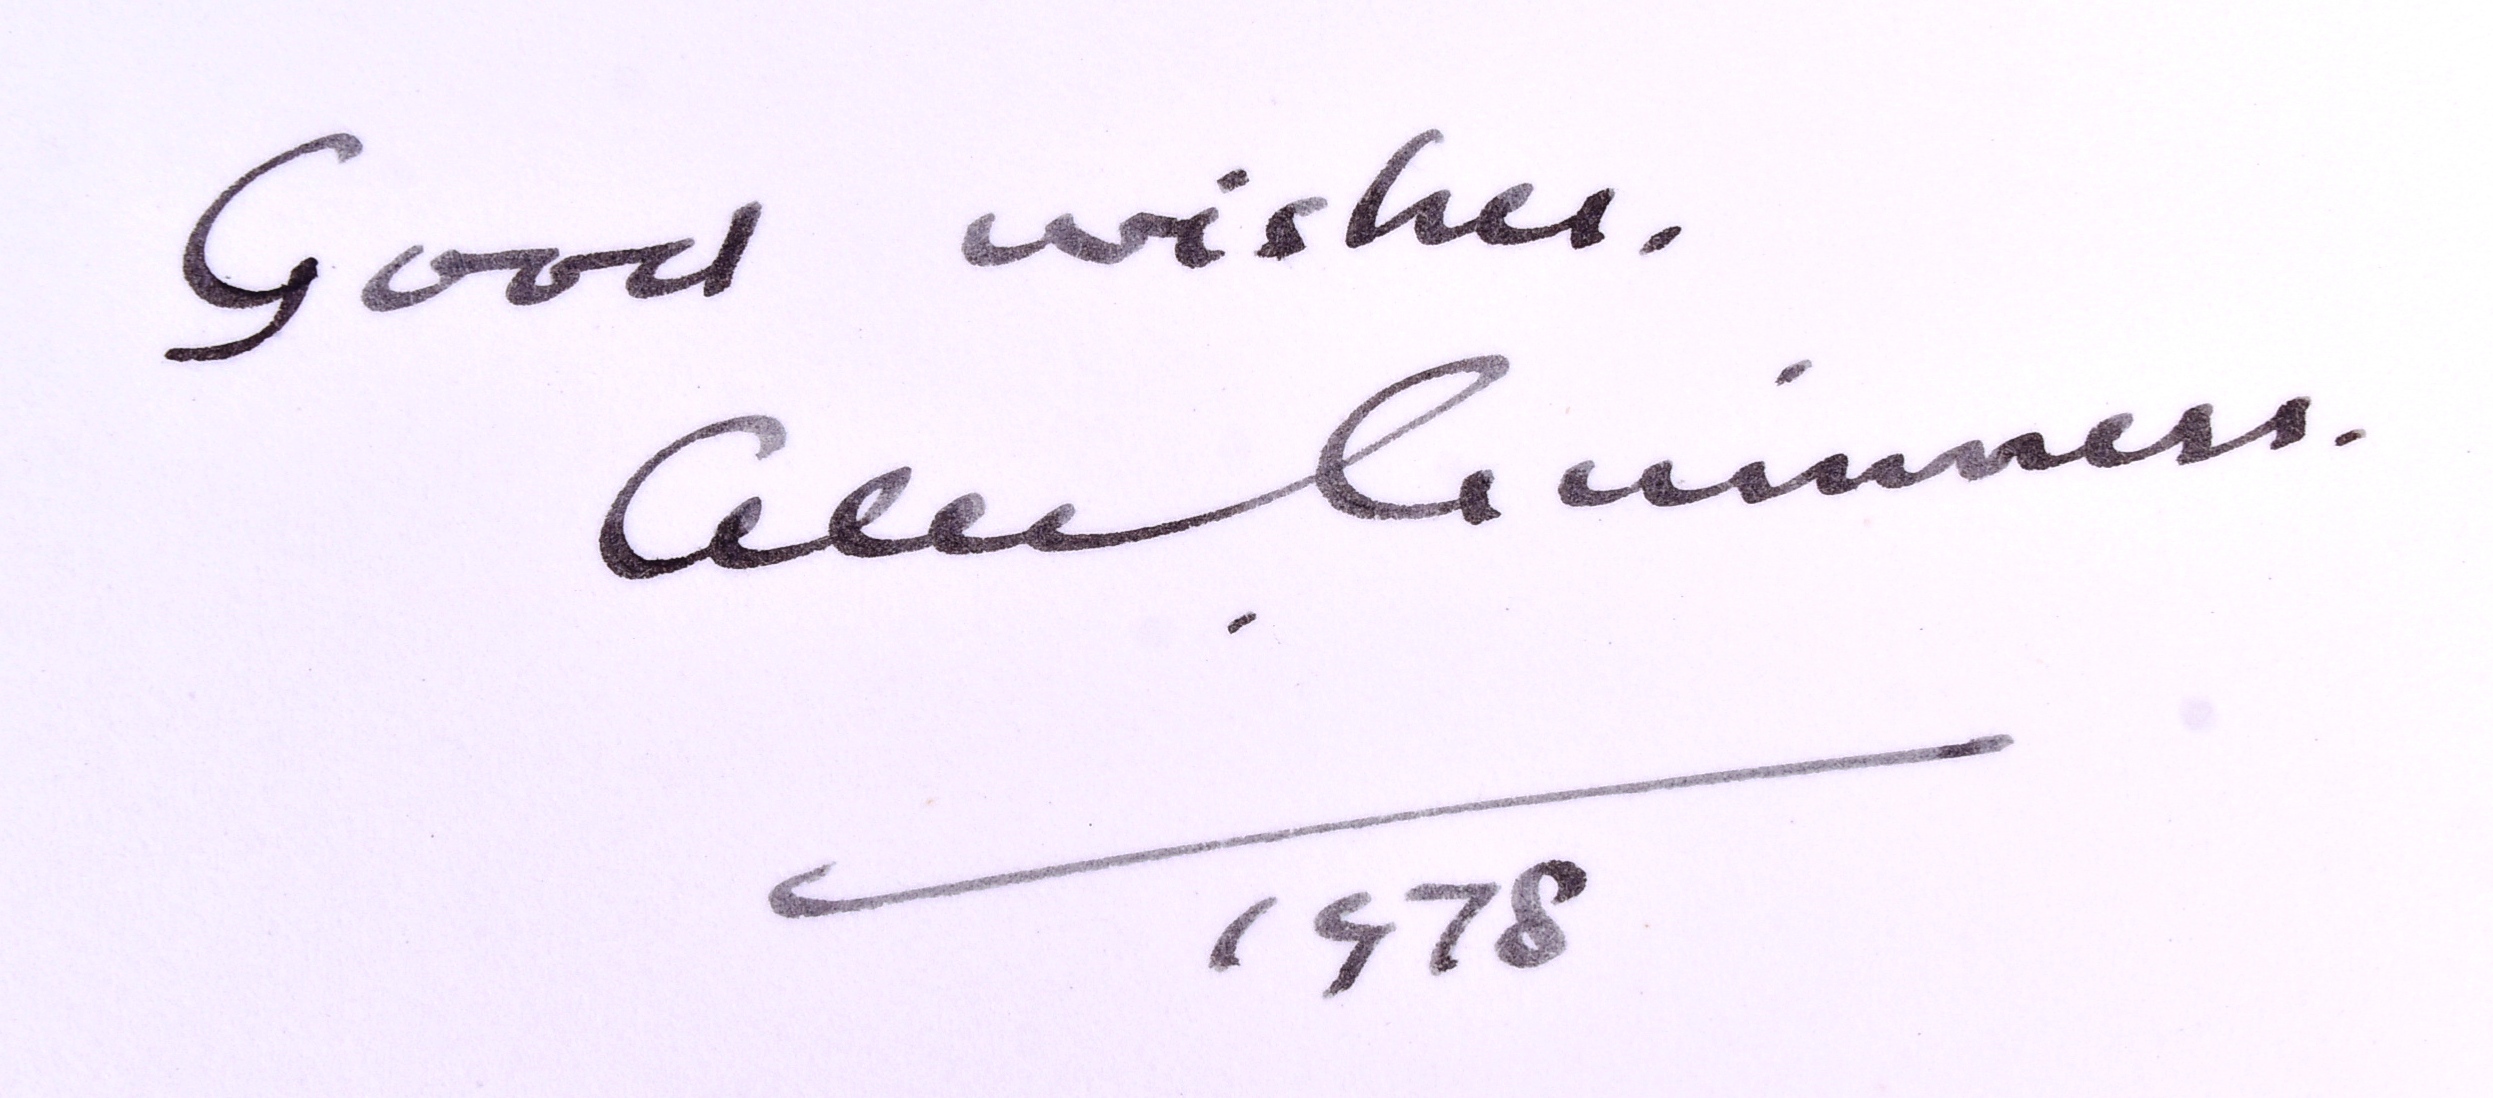 Good wishes.
Alec Guinness.
1978